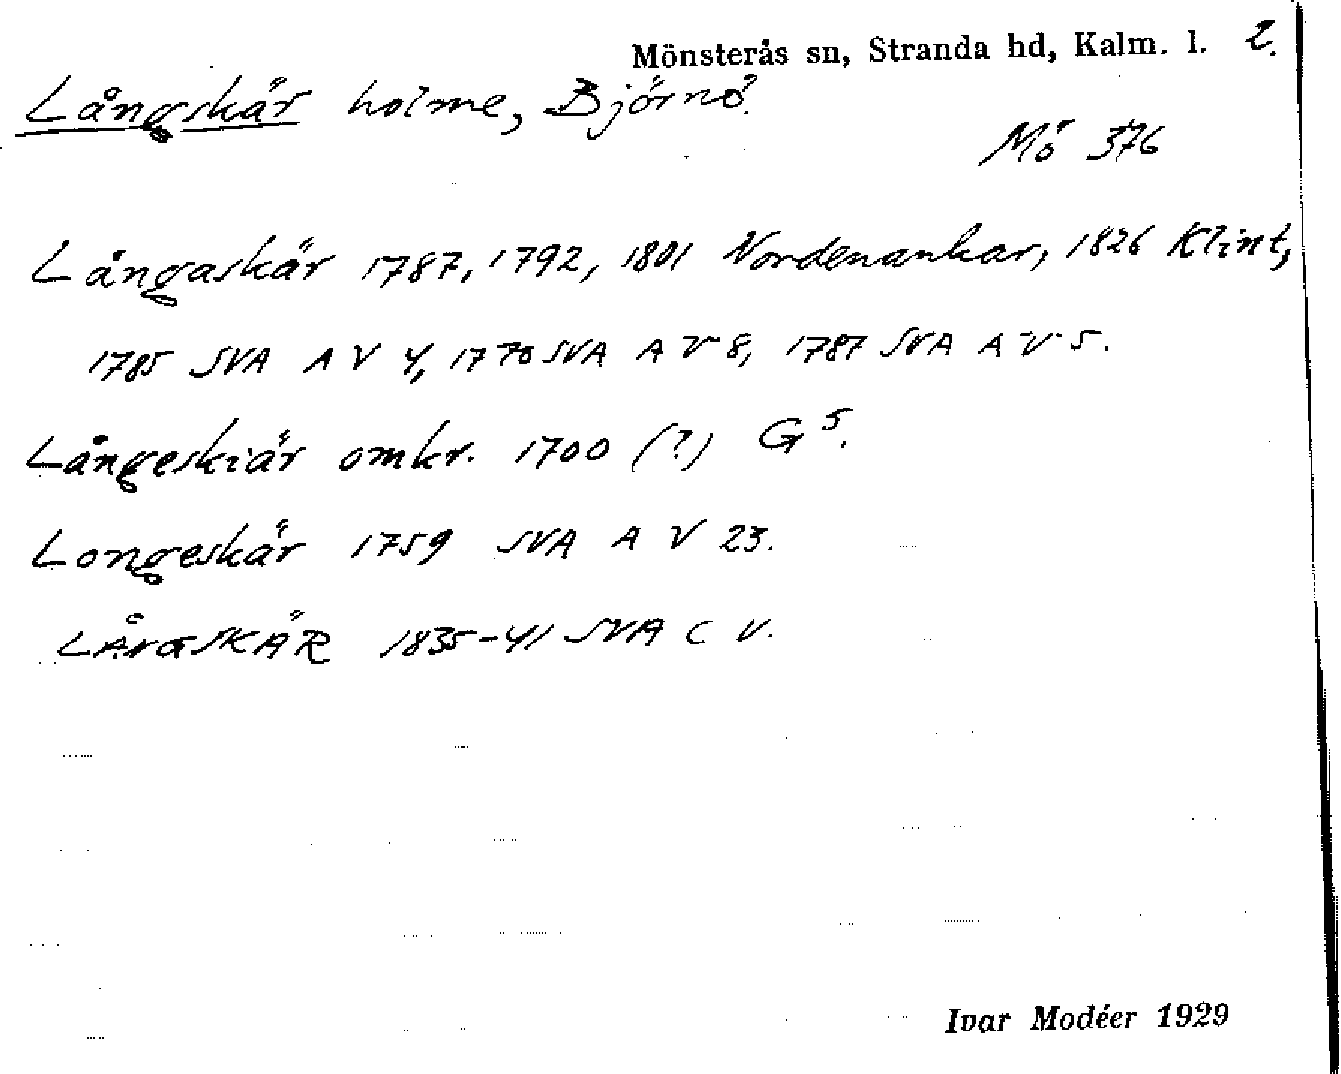 Mönsterås sn, Stranda hd, Kalm. l. 2.
Långskär holme, Björnö.
Mö 376
Långaskär 1787, 1792, 1801 Nordenankar, 1826 Klint,
1785 SVA A V 4, 1770 SVA A V 8, 1787 SVA A V 5.
Långeskiär omkr. 1700 (?) G 5.
Longeskär 1759 SVA A V 23.
LÅNGSKÄR 1835-41 SVA C V.
Ivar Modéer 1929